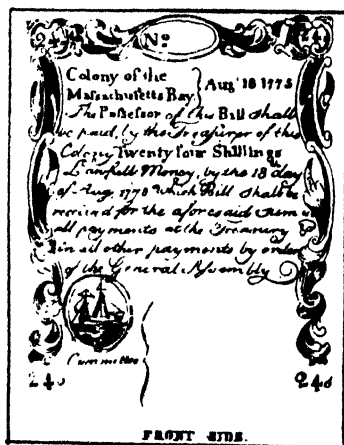 No
Colony of the
Massachusetts Bay
Augt 18 1775
The Possessor of this Bill shall
be paid, by the Treasurer of this
Colony Twenty four Shillings
Lawfull Money, by the 18 day
of Aug. 1778 which Bill shall be
received for the aforesaid sum in
all payments at the Treasury &
in all other payments by order
of the General Assembly
Committee
24s 24s
FRONT SIDE.